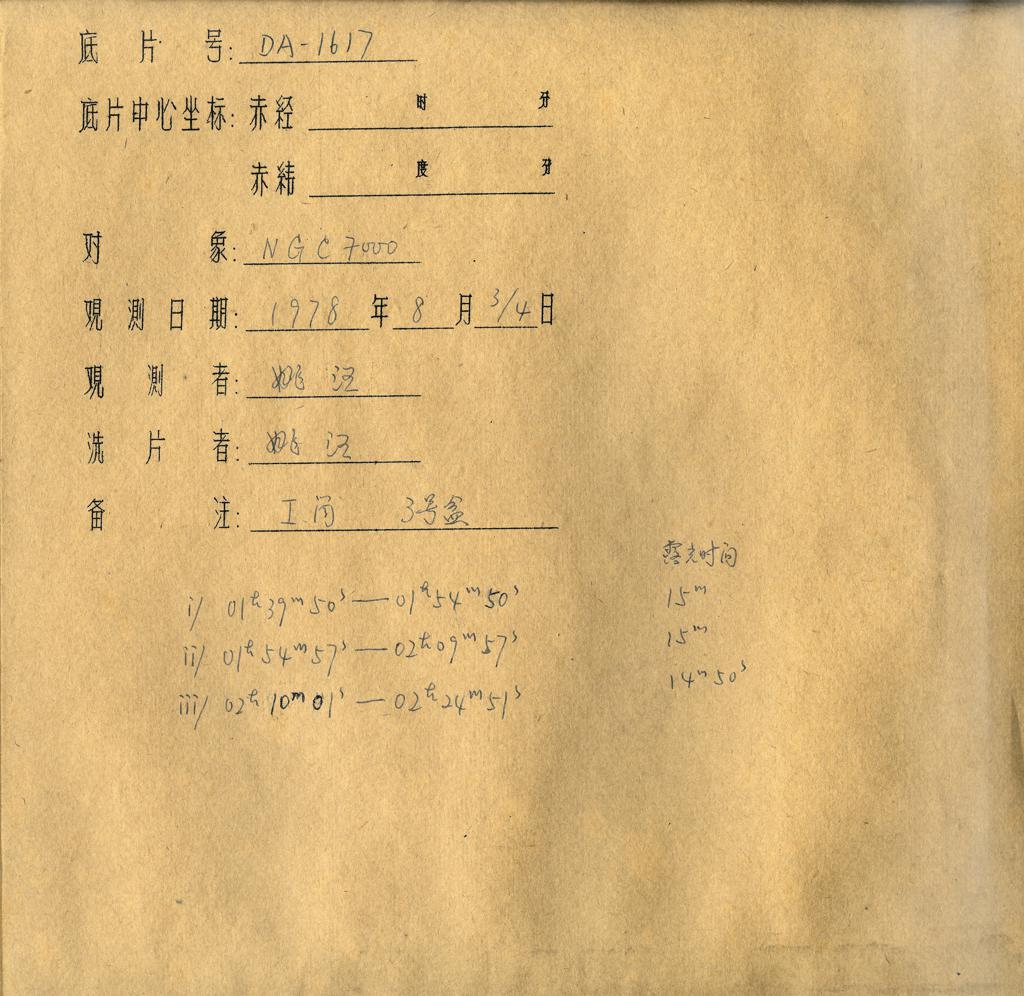 底片号: DA-1617
底片中心坐标: 赤经 时 分
赤纬 度 分
对象: NGC 7000
观测日期: 1978 年 8 月 3/4 日
观测者: 姚
洗片者: 姚
备注: 3号盒
露光时间
i) 01h39m50s — 01h54m50s 15m
ii) 01h54m57s — 02h09m57s 15m
iii) 02h10m01s — 02h24m51s 14m50s